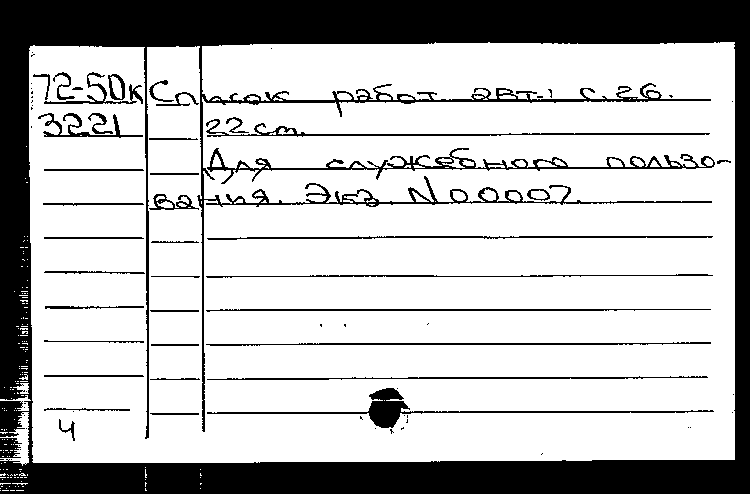 72-50к Список работ авт.: с.26.
3221 22 cm.
Для служебного пользо-
вания. Экз. N 00007.
4